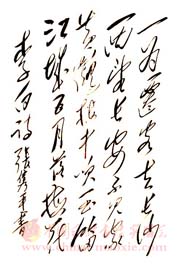 一为迁客去长沙
西望长安不见家
黄鹤楼中吹玉笛
江城五月落梅花
李白诗 张